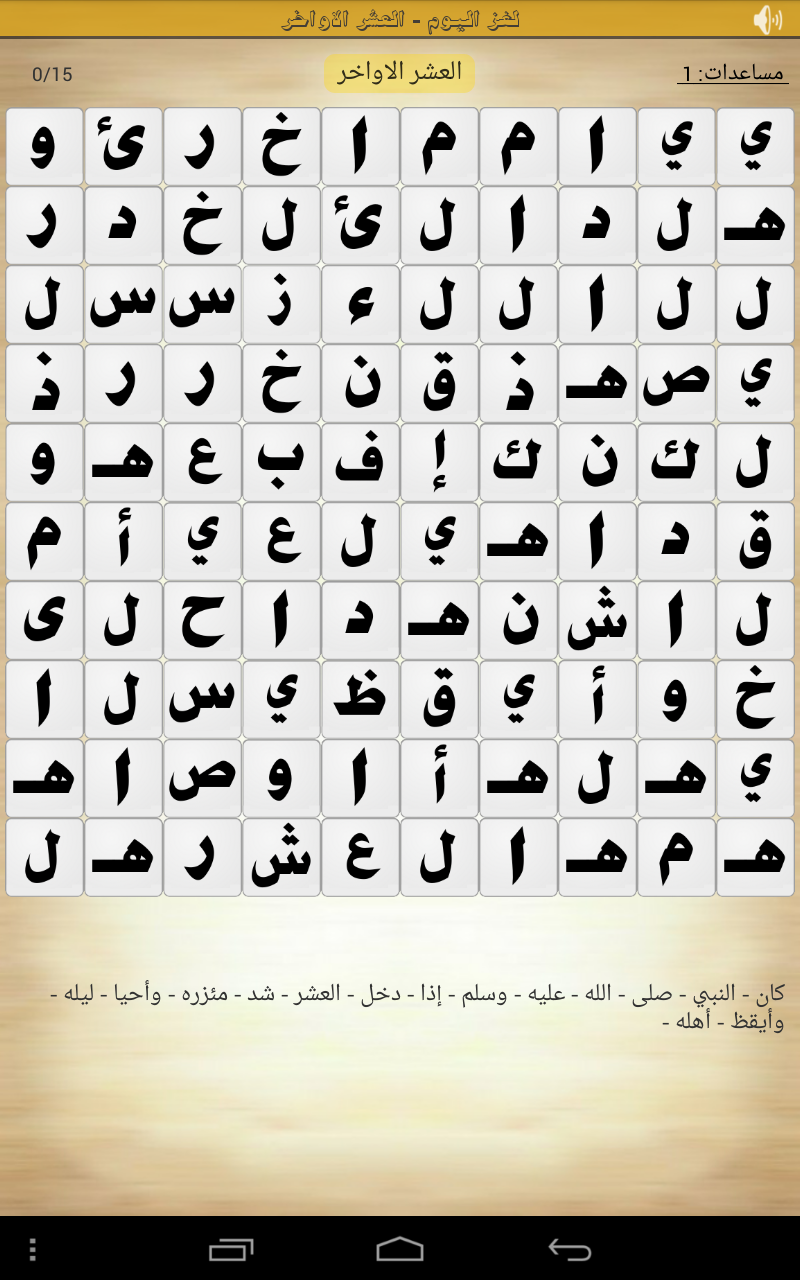 لغز اليوم - العشر الأواخر
مساعدات: 1 العشر الاواخر 0/15
ي ي ا م م ا خ ر ئ و
هـ ل د ا ل ئ ل خ د ر
ل ل ا ل ل ء ز س س ل
ي ص هـ ذ ق ن خ ر ر ذ
ل ك ن ك إ ف ب ع هـ و
ق د ا هـ ي ل ع ي أ م
ل ا ش ن هـ د ا ح ل ى
خ و أ ي ق ظ ي س ل ا
ي هـ ل هـ أ ا و ص ا هـ
هـ م هـ ا ل ع ش ر هـ ل
كان - النبي - صلى - الله - عليه - وسلم - إذا - دخل - العشر - شد - مئزره - وأحيا - ليله -
وأيقظ - أهله -